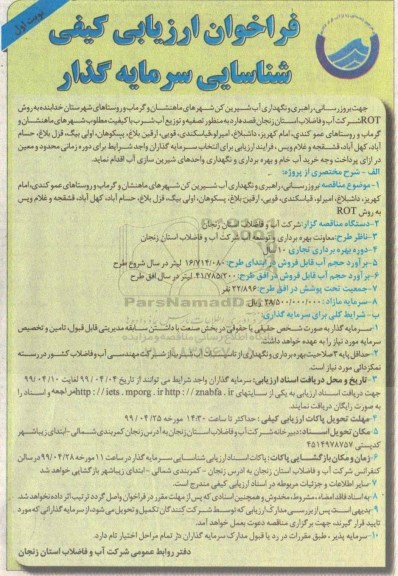 نوبت اول
فراخوان ارزیابی کیفی
شناسایی سرمایه گذار
جهت بروزرسانی، راهبری و نگهداری آب شیرین کن شهرهای ماهنشان و گرماب و روستاهای شهرستان خدابنده به روش
ROT شرکت آب و فاضلاب استان زنجان قصد دارد به منظور تصفیه و توزیع آب شرب با کیفیت مطلوب شهرهای ماهنشان و
گرماب و روستاهای عمو کندی، امام کهریز، داشبلاغ، امیرلو، قیاسکندی، قویی، ارقین بلاغ، پسکوهان، اولی بیگ، قزل بلاغ، حسام
آباد، کهل آباد، قشلجه و غلام ویس، فرایند ارزیابی برای انتخاب سرمایه گذاران واجد شرایط برای دوره زمانی محدود و معین
در ازای پرداخت وجه خرید آب خام و بهره برداری و نگهداری واحدهای شیرین سازی آب اقدام نماید.
الف - شرح مختصری از پروژه:
۱-موضوع مناقصه: بروزرسانی، راهبری و نگهداری آب شیرین کن شهرهای ماهنشان و گرماب و روستاهای عمو کندی، امام
کهریز، داشبلاغ، امیرلو، قیاسکندی، قویی، ارقین بلاغ، پسکوهان، اولی بیگ، قزل بلاغ، حسام آباد، کهل آباد، قشلجه و غلام ویس
به روش ROT
۲-دستگاه مناقصه گزار: شرکت آب و فاضلاب استان زنجان
۳-ناظر طرح: معاونت بهره برداری و توسعه آب شرکت آب و فاضلاب استان زنجان
۴-دوره بهره برداری تجاری ۱۰ سال
۵-برآورد حجم آب قابل فروش در ابتدای طرح: ۱۶/۷۱۴/۰۸۰ لیتر در سال شروع طرح
۶-برآورد حجم آب قابل فروش در افق طرح: ۴۱/۷۸۵/۲۰۰ لیتر در سال افق طرح
۷-جمعیت تحت پوشش در افق طرح: ۲۲/۸۹۶ نفر
۸-سرمایه مازاد: ۲۸/۵۰۰/۰۰۰/۰۰۰ ریال
ParsNamadData
ب- شرایط کلی برای سرمایه گذاری:
۱-سرمایه گذار به صورت شخص حقیقی یا حقوقی در بخش صنعت با داشتن مسابقه مدیریتی قابل قبول، تامین و تخصیص
سرمایه مورد نیاز را به عهده خواهد داشت.
۲-حداقل پایه ۳ صلاحیت بهره برداری و نگهداری از تاسیسات آب شرب از شرکت مهندسی آب و فاضلاب کشور در رسته
نمکزدائی مورد نیاز است.
۳-تاریخ و محل دریافت اسناد ارزیابی: سرمایه گذاران واجد شرایط می توانند از تاریخ ۹۹/۰۴/۰۴ لغایت ۹۹/۰۴/۱۰
جهت دریافت اسناد ارزیابی به یکی از سایتهای http://iets.mporg.ir http://znabfa.ir مراجعه و اسناد را
به صورت رایگان دریافت نمایند.
۴-مهلت تحویل پاکات ارزیابی کیفی: حداکثر تا ساعت ۱۴:۳۰ مورخه ۹۹/۰۴/۲۵
۵-مکان تحویل اسناد: دبیرخانه شرکت آب و فاضلاب استان زنجان به آدرس زنجان کمربندی شمالی -ابتدای زیباشهر
کدپستی ۴۵۱۴۹۷۸۷۵۷
۶-زمان و مکان بازگشایی پاکات: پاکات اسناد ارزیابی شناسایی سرمایه گذار در ساعت ۱۱ مورخه ۹۹/۰۴/۲۸ در سالن
کنفرانس شرکت آب و فاضلاب استان زنجان به آدرس زنجان - کمربندی شمالی -ابتدای زیباشهر بازگشایی خواهد شد
۷-سایر اطلاعات و جزئیات مربوطه در اسناد ارزیابی کیفی مندرج است.
۸-به اسناد فاقد امضاء، مشروط، مخدوش و همچنین اسنادی که پس از مهلت مقرر در فراخوان واصل گردد ترتیب اثر داده نخواهد شد.
۹-بدیهی است پس از بررسی مدارک ارزیابی که توسط شرکت کنندگان تکمیل و تحویل می شود، از سرمایه گذارانی که مورد
تایید قرار گیرند، جهت برگزاری مناقصه دعوت بعمل خواهد آمد.
۱۰-سرمایه پذیر، طبق مقررات در رد یا قبول مدارک سرمایه گذاران در تمام مراحل اختیار تام دارد.
دفتر روابط عمومی شرکت آب و فاضلاب استان زنجان